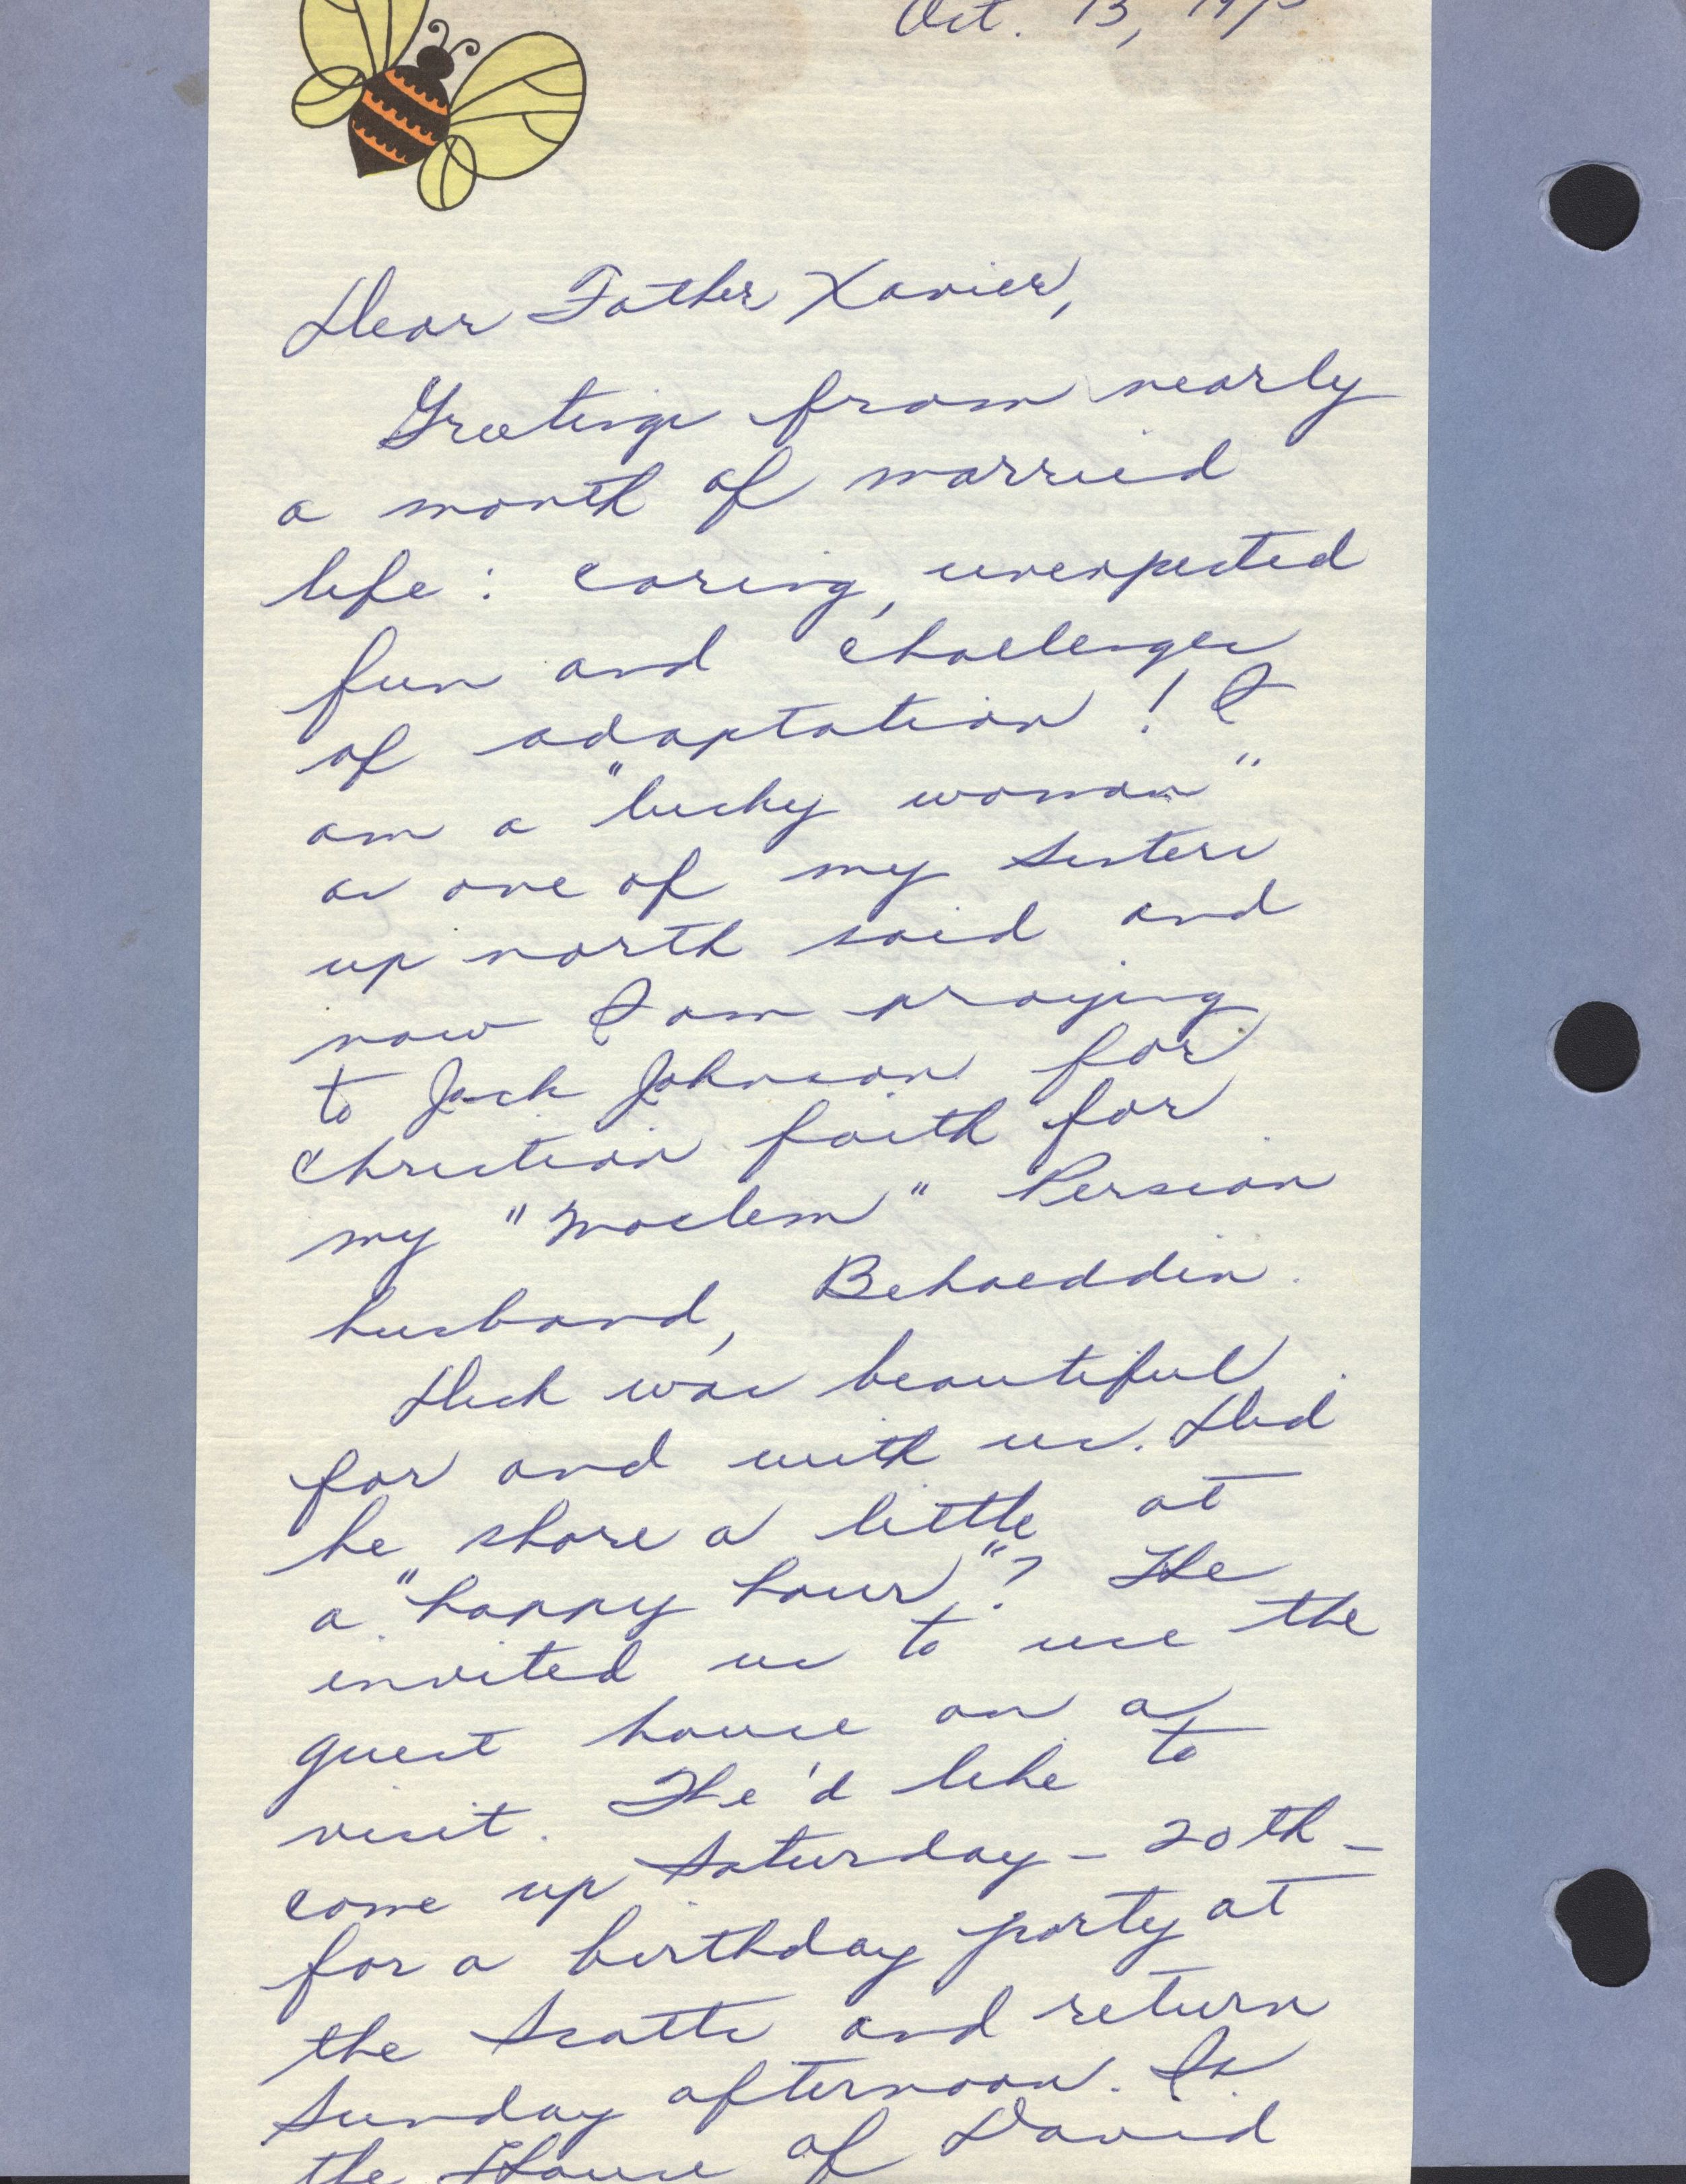 Oct. 13,
Dear Father Xavier,
Greetings from nearly
a month of married
life: caring, unexpected
fun and challenges
of adaptation! I
am a "lucky woman"
as one of my sisters
up north said and
now I am praying
to Jack Johnson for
Christian faith for
my "Moslem" Persian
husband, Behaeddin.
Dick was beautiful
for and with us. Did
he share a little at
a "happy hour"? He
invited us to use the
guest house on a
visit. He'd like to
come up Saturday - 20th -
for a birthday party at
the Scotts and return
Sunday afternoon. Is
the House of David